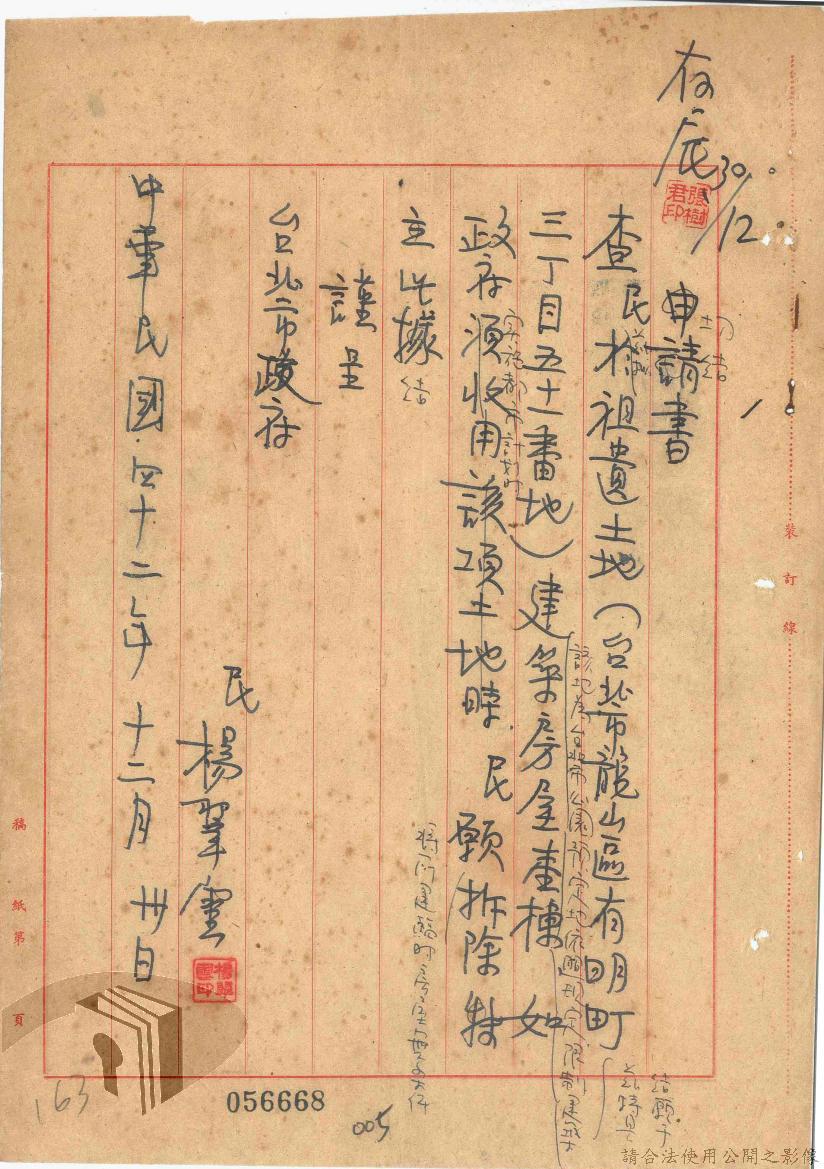 存底 30/12
張樹君印
申請書
切結
查民於祖遺土地（台北市龍山區有明町
三丁目五十一番地）建築房屋壹棟 如
該地為台北市公園預定地依照規定限制建築
實施都市計劃時
政府須收用該項土地時 民願拆除特
立此據
結
將所建臨時房屋
謹呈
台北市政府
民 楊翠雲
楊翠雲印
中華民國四十二年十二月卅日
裝訂線
稿紙第 頁
163
056668
005
請合法使用公開之影像